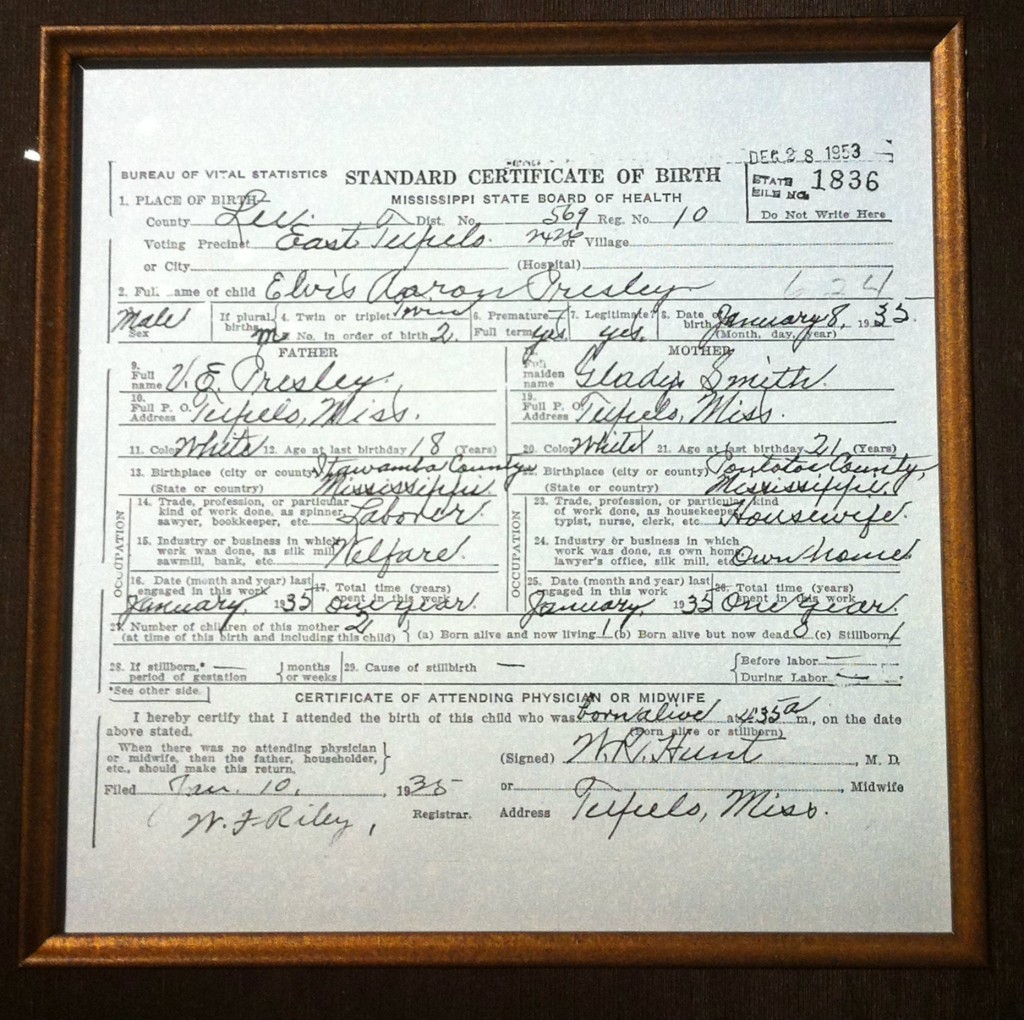 DEC 28 1953
BUREAU OF VITAL STATISTICS STANDARD CERTIFICATE OF BIRTH STATE FILE NO. 1836
1. PLACE OF BIRTH MISSISSIPPI STATE BOARD OF HEALTH
County Lee. Dist. No. 569 Reg. No. 10 Do Not Write Here
Voting Precinct East Tupelo. or Village
or City (Hospital)
2. Full ame of child Elvis Aaron Presley 624
Male Sex If plural births 4. Twin or triplet Twin No. in order of birth 2. 6. Premature Full term yes. 7. Legitimate? yes. 8. Date of birth January 8, 1935.
(Month, day, year)
FATHER MOTHER
9. Full name V. E. Presley. Full maiden name Gladys Smith.
10. Full P. O. Address Tupelo, Miss. 19. Full P. O. Address Tupelo, Miss.
11. Colo White 12. Age at last birthday 18 (Years) 20. Colo White 21. Age at last birthday 21 (Years)
13. Birthplace (city or county) Itawamba County 22. Birthplace (city or county) County,
(State or country) Mississippi. (State or country) Mississippi.
OCCUPATION
14. Trade, profession, or particular kind of work done, as spinner, sawyer, bookkeeper, etc. Laborer.
15. Industry or business in which work was done, as silk mill, sawmill, bank, etc. Welfare.
16. Date (month and year) last engaged in this work January, 1935 17. Total time (years) spent in this work One year.
OCCUPATION
23. Trade, profession, or particular kind of work done, as housekeeper, typist, nurse, clerk, etc Housewife.
24. Industry or business in which work was done, as own home, lawyer's office, silk mill, etc. Own home.
25. Date (month and year) last engaged in this work January, 1935 26. Total time (years) spent in this work One year.
27. Number of children of this mother 2
(at time of this birth and including this child) (a) Born alive and now living 1 (b) Born alive but now dead 0 (c) Stillborn 1
28. If stillborn,* — period of gestation months or weeks 29. Cause of stillbirth — Before labor — During Labor —
*See other side.
CERTIFICATE OF ATTENDING PHYSICIAN OR MIDWIFE
I hereby certify that I attended the birth of this child who was born alive at 435 a m., on the date
above stated. (Born alive or stillborn)
When there was no attending physician
or midwife, then the father, householder, (Signed) W. R. Hunt, M. D.
etc., should make this return.
Filed Jan. 10, 1935 or , Midwife
W. F Riley, Registrar. Address Tupelo, Miss.